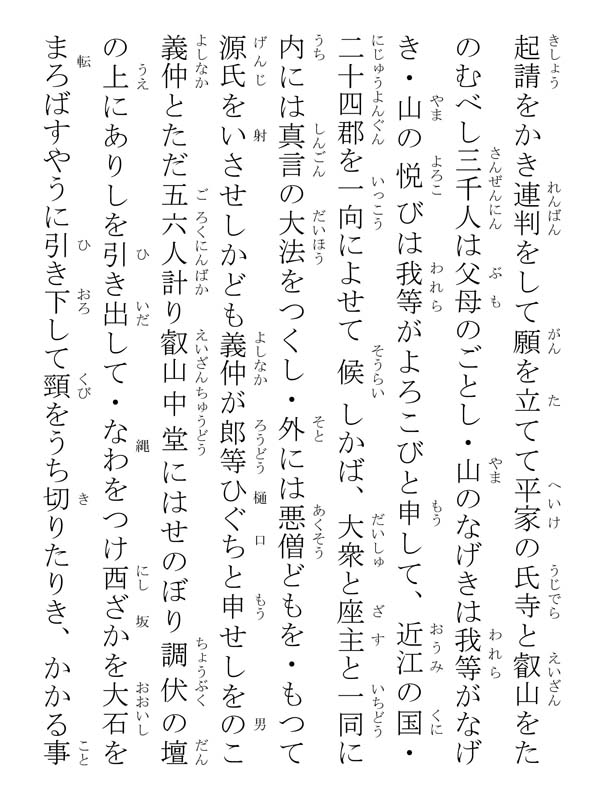 起請をかき連判をして願を立てて平家の氏寺と叡山をた
のむべし三千人は父母のごとし・山のなげきは我等がなげ
き・山の悦びは我等がよろこびと申して、近江の国・
二十四郡を一向によせて候しかば、大衆と座主と一同に
内には真言の大法をつくし・外には悪僧どもを・もつて
源氏をいさせしかども義仲が郎等ひぐちと申せしをのこ
義仲とただ五六人計り叡山中堂にはせのぼり調伏の壇
の上にありしを引き出して・なわをつけ西ざかを大石を
まろばすやうに引き下して頸をうち切りたりき、かかる事